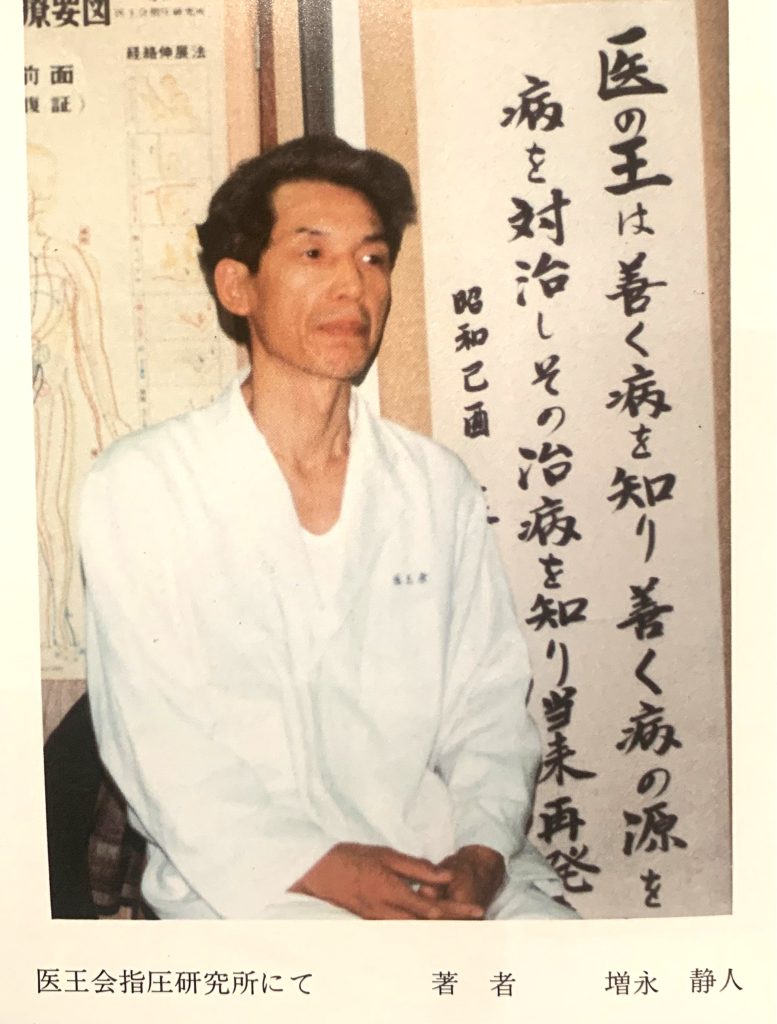 療要図
医王会指圧研究所
経絡伸展法
前面
復証）
医の王は善く病を知り善く病の源を
病を対治しその治病を知り当来再発
昭和己酉
医王会指圧研究所にて　著者　増永　静人